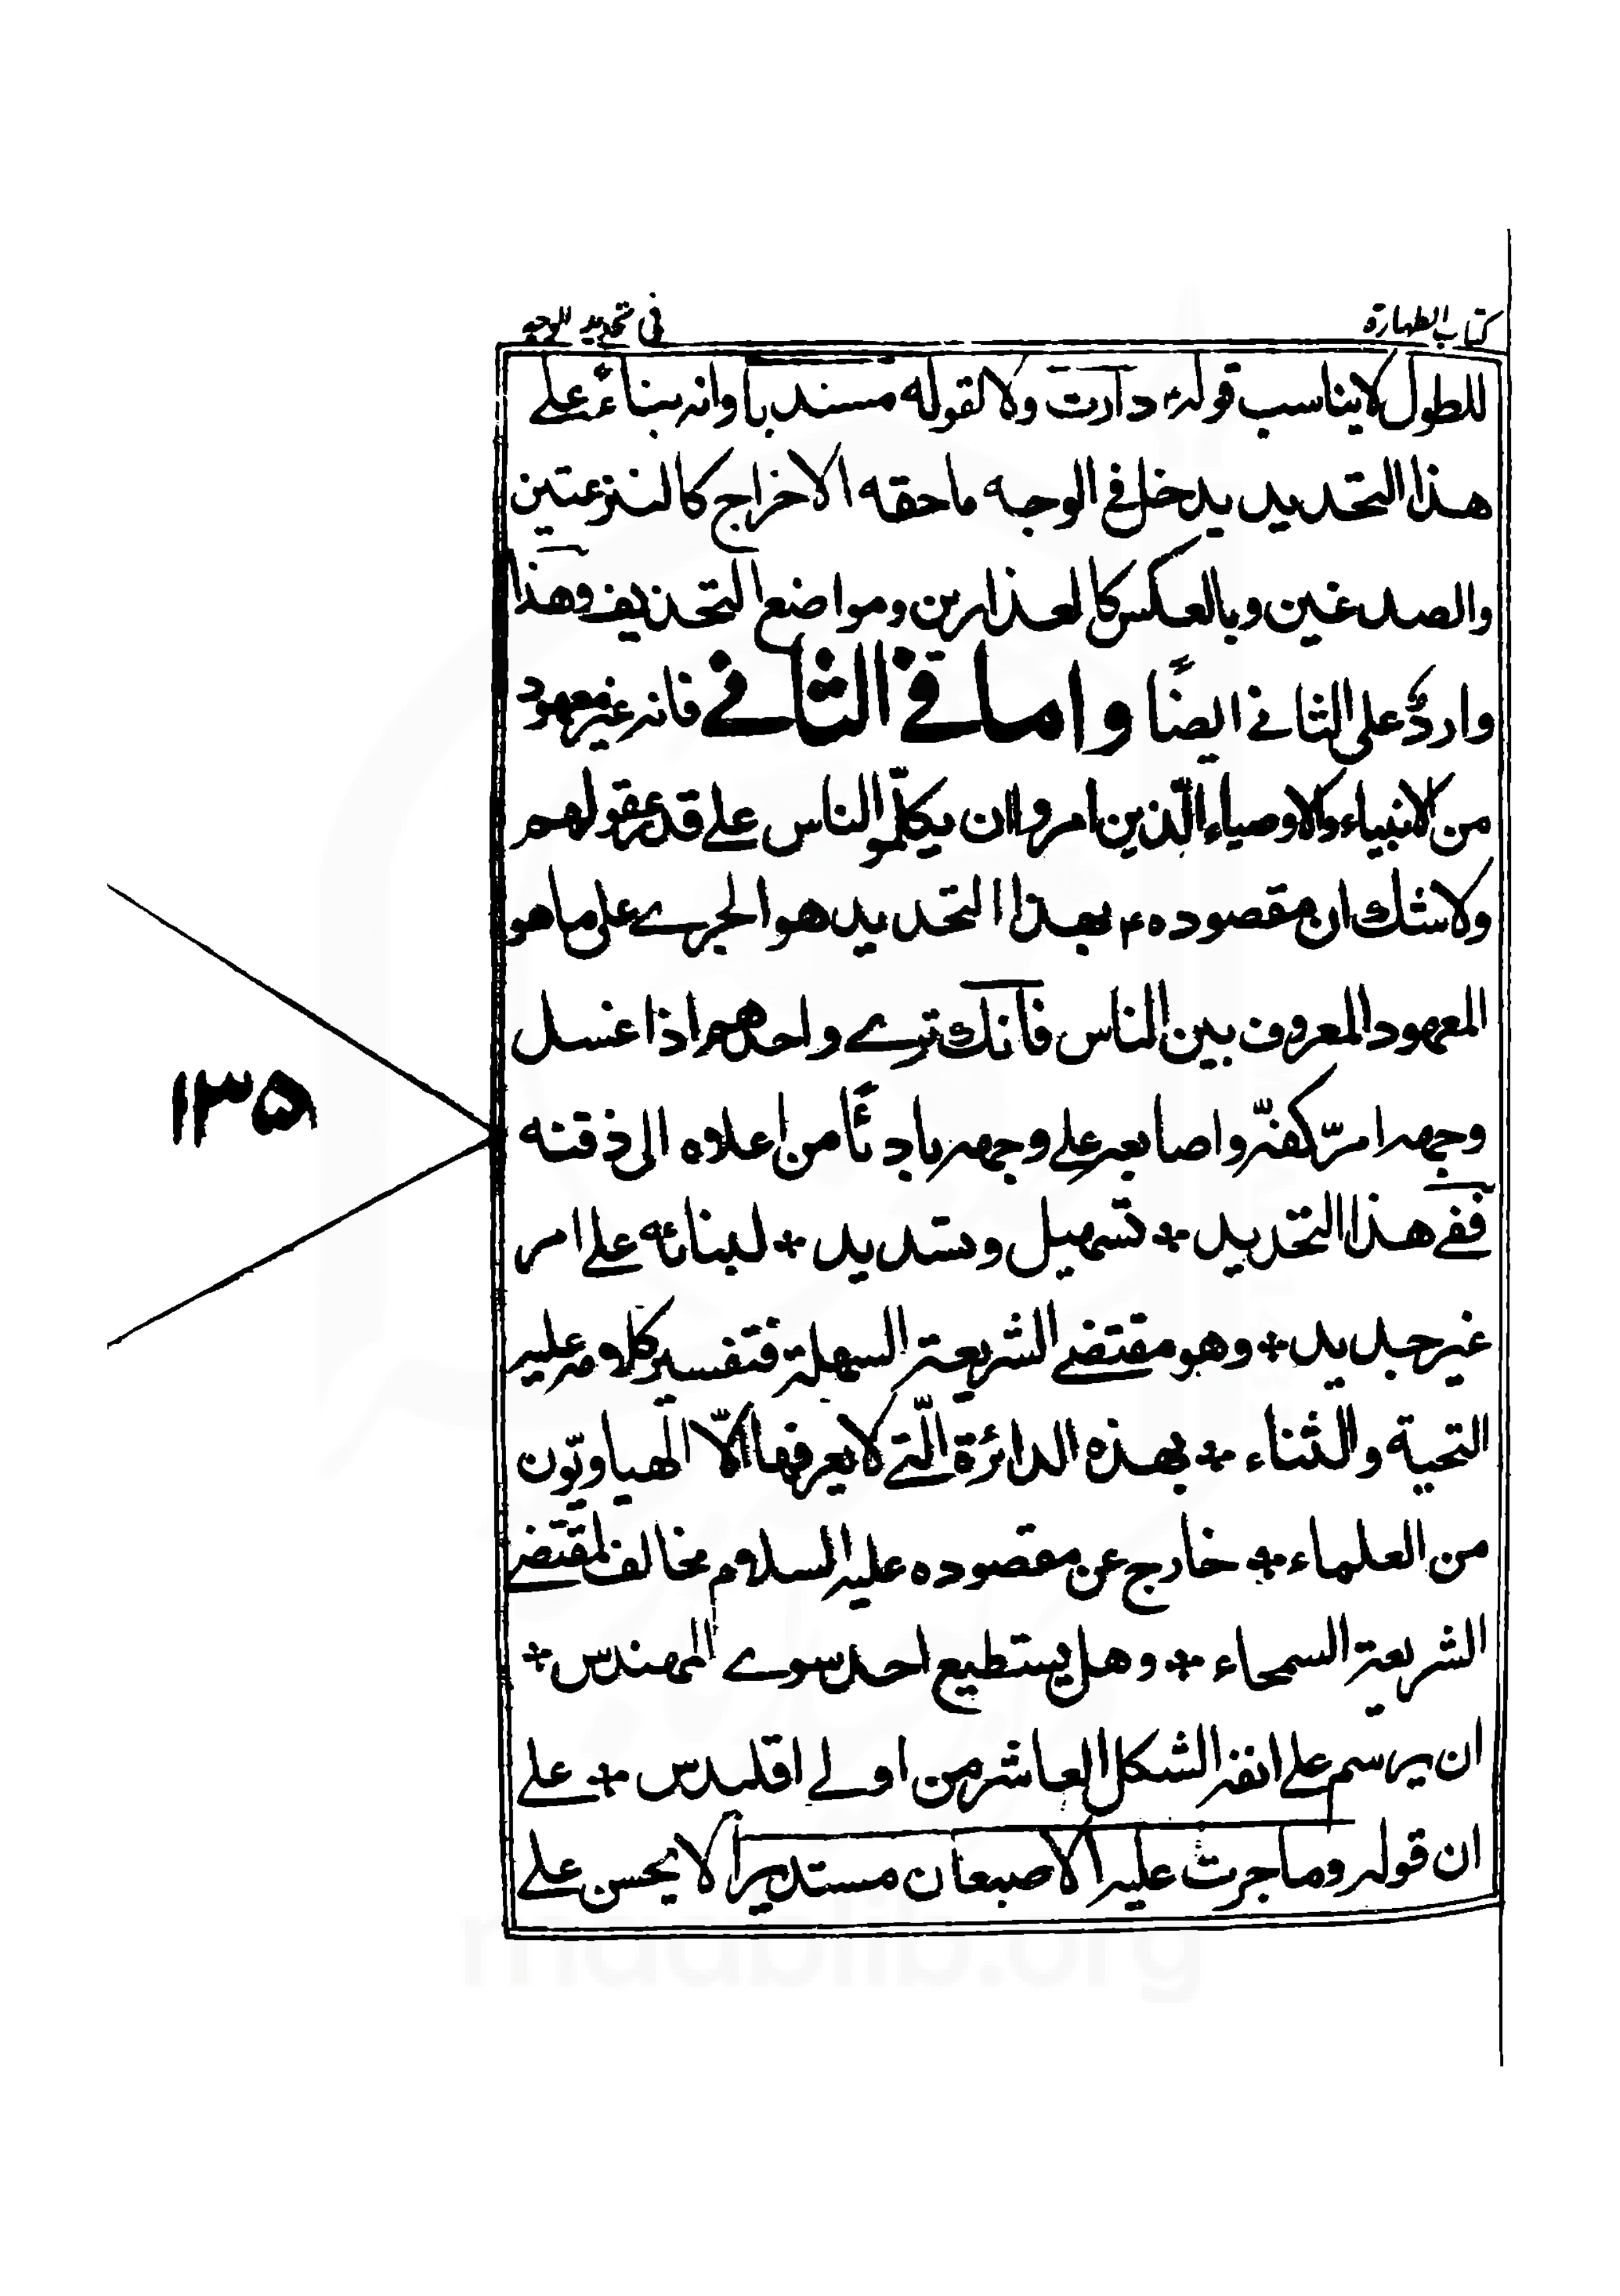 كتاب الطهارة
في تحديد الوجه
للطول لا يناسب قوله ؑ دارت ولا لقوله مستديرا وانه بناءً على
هذا التحديد يدخل في الوجه ما حقه الاخراج كالنزعتين
والصدغين وبالعكس كالعذارين ومواضع التحذيف وهذا
واردٌ على الثاني ايضًا واما في الثاني فانه غير معهود
من الانبياء والاوصياء الّذين امروا ان يكلّموا الناس على قدر عقولهم
ولا شك ان مقصوده ؑ بهذا التحديد هو الجري على ما هو
المعهود المعروف بين الناس فانك ترى واحدهم اذا غسل
وجهه امرّ كفّه واصابعه على وجهه بادئًا من اعلاه الى ذقنه
ففي هذا التحديد * تسهيل وتسديد * لبنائه على امر
غير جديد * وهو مقتضى الشريعة السهلة فتفسير كلامه عليه
التحية والثناء * بهذه الدائرة الّتي لا يعرفها الّا الهياويّون
من العلماء * خارج عن مقصوده عليه السلام مخالف لمقتضى
الشريعة السمحاء * وهل يستطيع احد سوى المهندس *
ان يرسم على انفه الشكل العاشر من اولى اقليدس * على
ان قوله وما جرت عليه الاصبعان مستديرا لا يحسن على
١٣٥
maablib.org